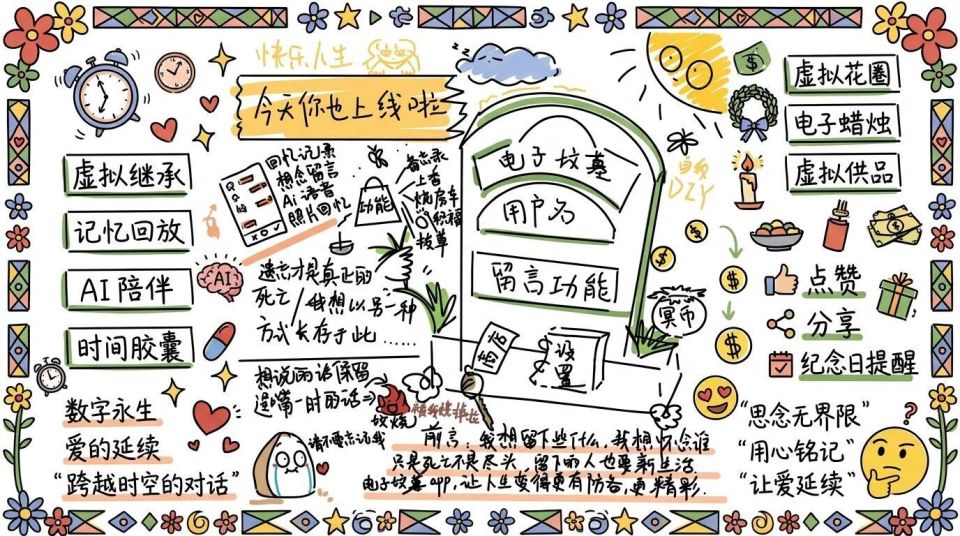 快乐人生
今天你也上线啦
虚拟继承
记忆回放
AI陪伴
时间胶囊
AI
数字永生
爱的延续
“跨越时空的对话”
回忆记录
想念留言
Ai语音
照片回忆
功能
备忘录
上香
烧房车
积福
拔草
遗忘才是真正的
死亡/我想以另一种
方式长存于此……
想说的话保留
逞嘴一时的话→
放烧
请不要忘记我
电子坟墓
用户名
留言功能
设置
冥币
自我
DIY
前言：我想留下些什么，我想怀念谁
只是死亡不是尽头，留下的人也要新生活
电子坟墓app，让人生变得更有
更精彩.
虚拟花圈
电子蜡烛
虚拟供品
$
$
$
$
点赞
分享
纪念日提醒
“思念无界限”
“用心铭记”
“让爱延续”
?